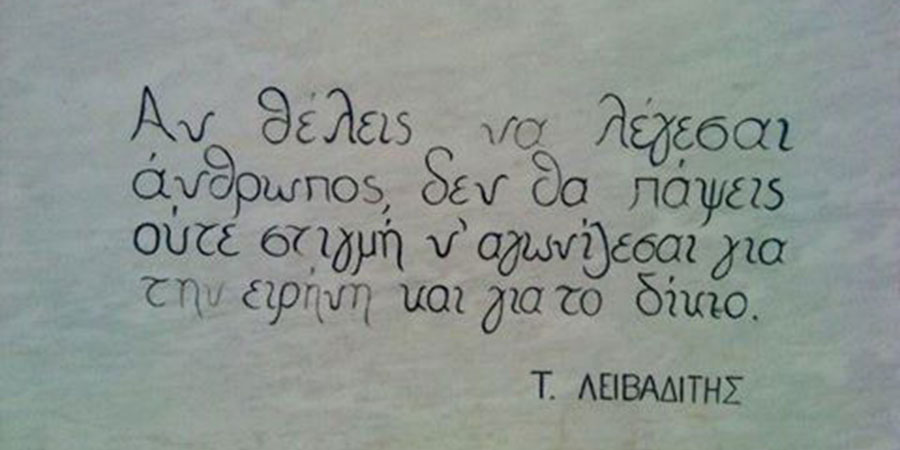 Αν θέλεις να λέγεσαι
άνθρωπος, δεν θα πάψεις
ούτε στιγμή ν' αγωνίζεσαι για
την ειρήνη και για το δίκιο.
Τ. ΛΕΙΒΑΔΙΤΗΣ